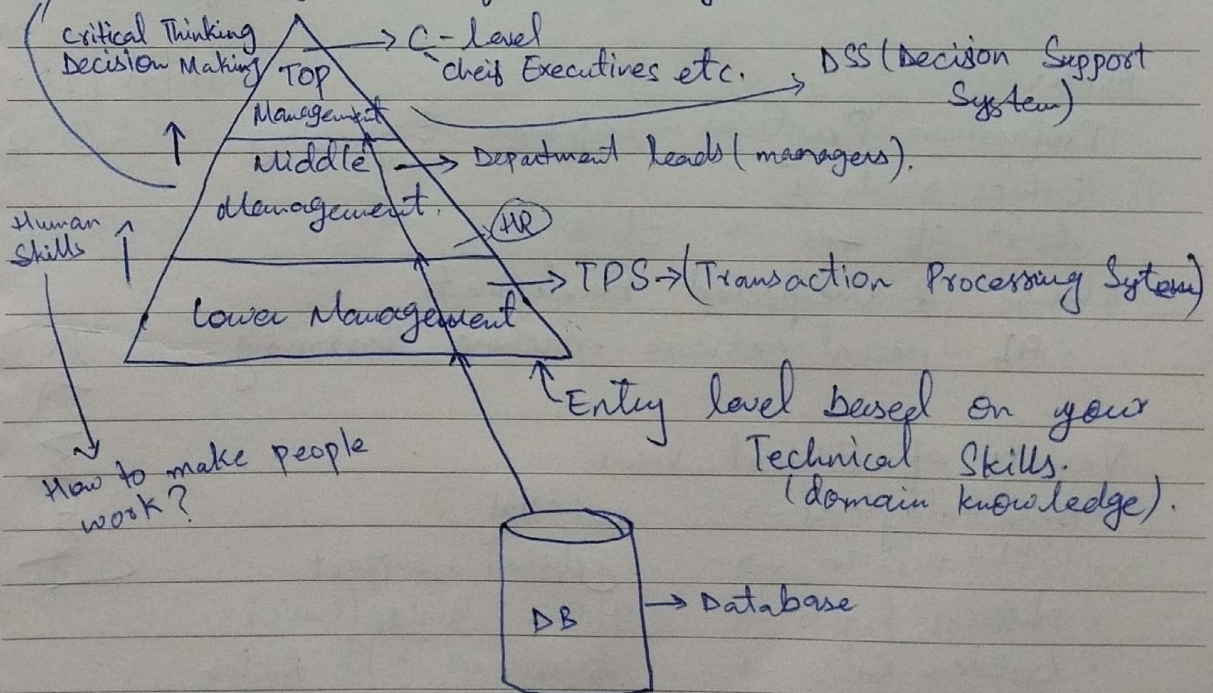 Critical Thinking
Decision Making
TOP
Management
→ C-level
cheif Executives etc.
DSS (Decision Support
System)
Middle
Management.
→ Department leads (managers).
HR
Human
Skills
Lower Management
→ TPS → (Transaction Processing Sytem)
Entry level based on your
Technical Skills.
(domain knowledge).
How to make people
work?
DB
→ Database